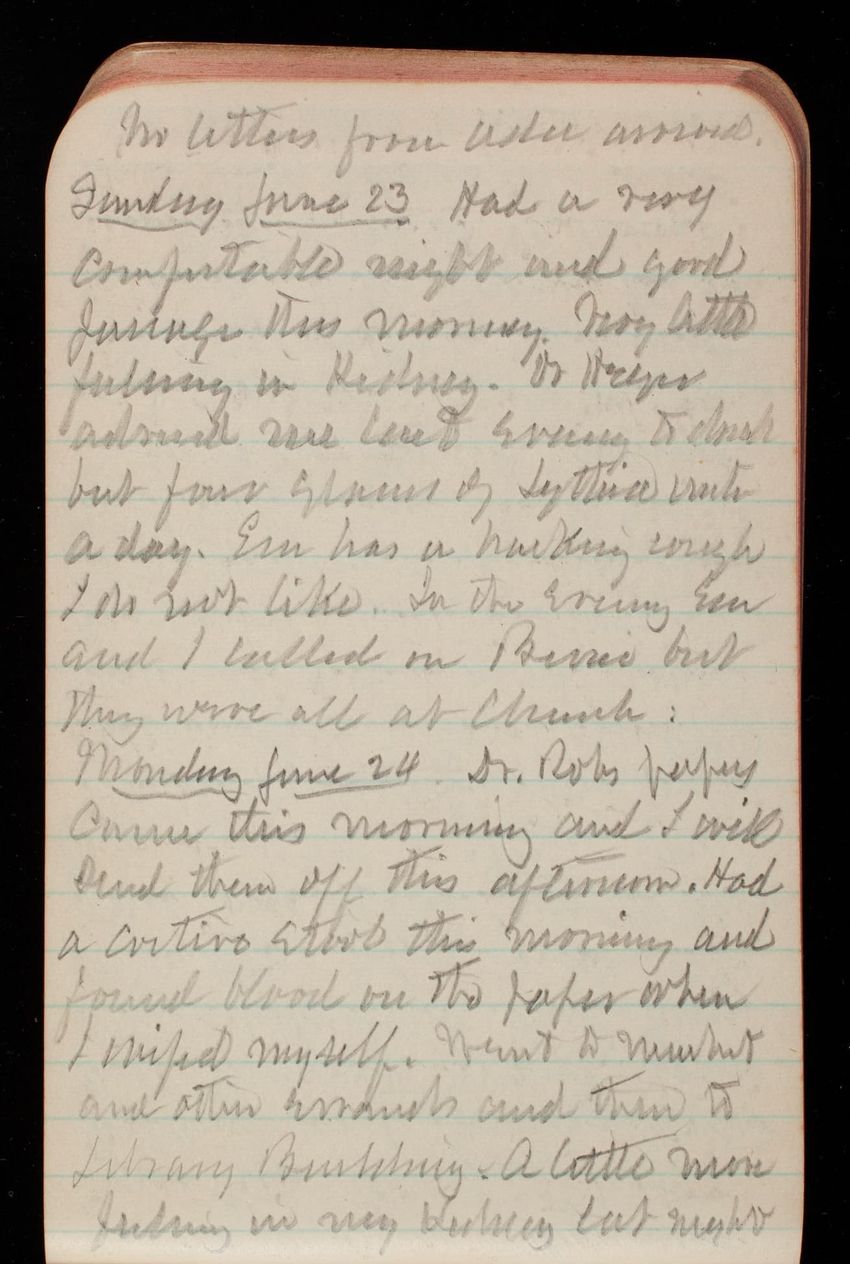 No letters from Adee arrived.
Sunday June 23 Had a very
comfortable night and good
passage this morning. Very little
feeling in Kidney. Dr
advised me last evening to drink
but four glasses of Lythia water
a day. Em has a hacking cough
I do not like. In the evening Em
and I called on but
they were all at Church:
Monday June 24. Dr. Robs papers
came this morning and I will
send them off this afternoon. Had
a costive stool this morning and
found blood on the paper when
I wiped myself. Went to market
and other errands and then to
Library Building. A little more
feeling in my Kidney last night